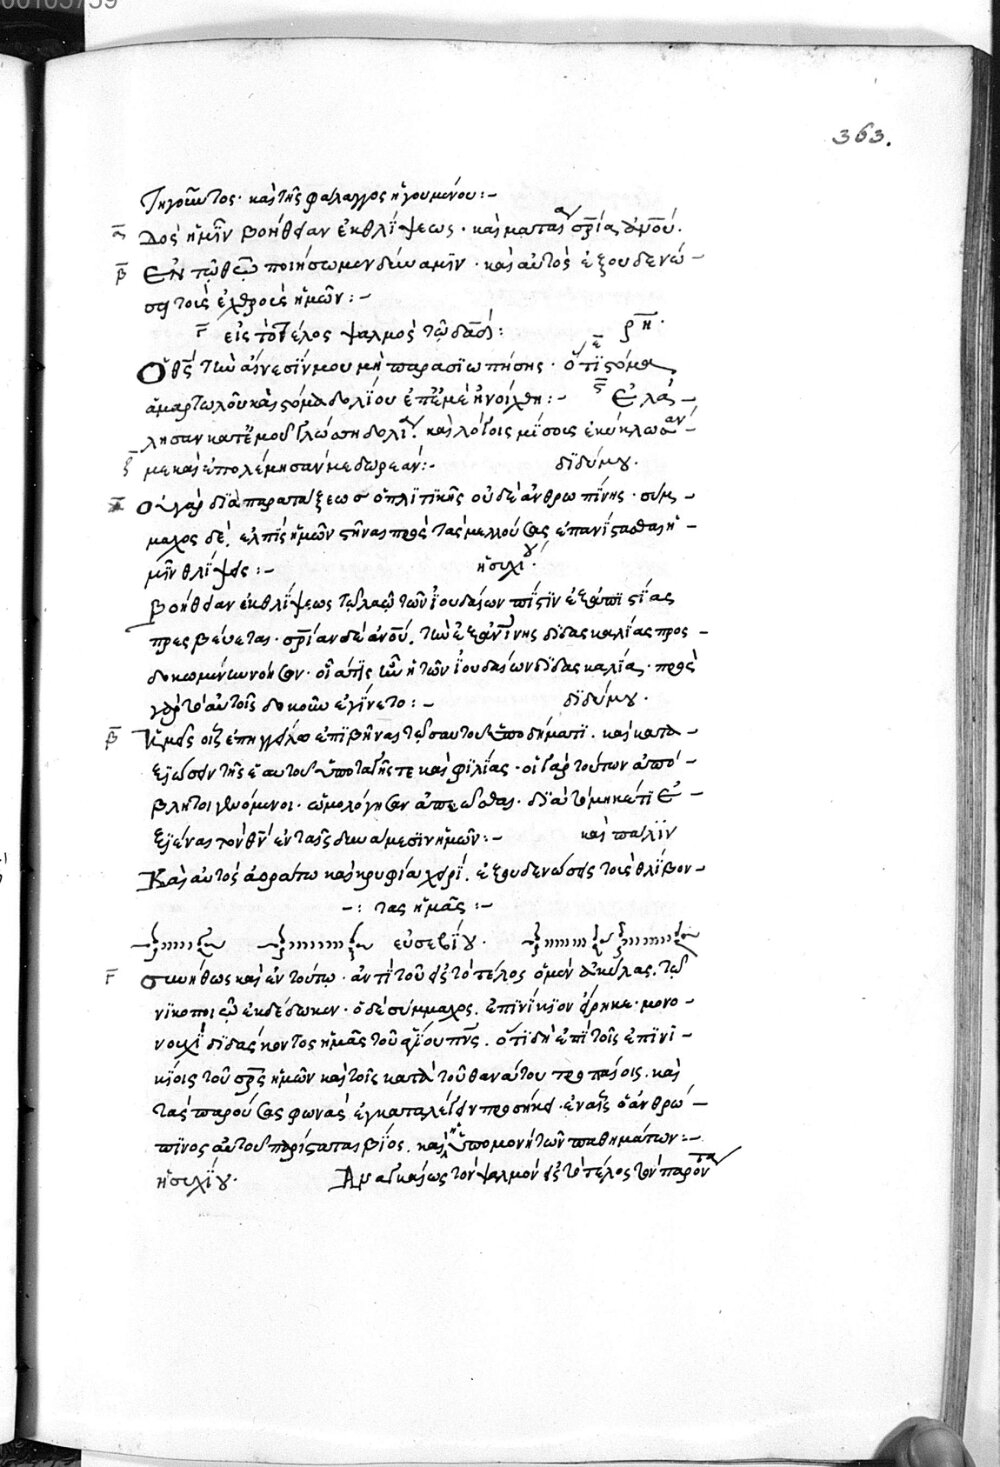 00105759
363.
τηγοῦντος· καὶ τῆς φάλαγγος ἡγουμένου:-
ᾱ Δὸς ἡμῖν βοήθειαν ἐκ θλίψεως· καὶ ματαία σρία ἀνου.
β̄ Ἐν τῷ θῶ ποιήσωμεν δύναμιν· καὶ αὐτὸς ἐξουδενώ-
σει τοὺς ἐχθροὺς ἡμῶν:-
γ̄ εἰς τὸ τέλος ψαλμὸς τῷ δαδ: ρη·
Ὁ θς τὴν αἴνεσίν μου μὴ παρασιωπήσῃς· ε̄ ὅτι στόμα
ἁμαρτωλοῦ καὶ στόμα δολίου ἐπ' ἐμὲ ἠνοίχθη:- ς̄ Ἐλά-
λησαν κατ' ἐμοῦ γλώσσῃ δολίᾳ. καὶ λόγοις μίσους ἐκύκλωσαν
ζ̄ με καὶ ἐπολέμησάν με δωρεάν:- διδύμου.
ᾱ Οὐ γὰρ διὰ παρατάξεως ὁπλιτικῆς οὐδὲ ἀνθρωπίνης· σύμ-
μαχος δὲ, ἐλπὶς ἡμῶν στῆναι πρὸς τὰς μελλούσας ἐπανίστασθαι ἡ-
μῖν θλίψεις:- ἡσυχίου·
βοήθειαν ἐκ θλίψεως τῷ λαῷ τῶν ἰουδαίων πίστιν ἐξ ἀπιστίας
πρεσβεύεται· σρίαν δὲ ἀνου, τὴν ἐξ ἀνθίνης διδασκαλίας προσ-
δοκωμένων οὖν· οἵα τις ἦν ἡ τῶν ἰουδαίων διδασκαλία· πρὸς
γὰρ τὸ αὐτοῖς δοκοῦν ἐγίνετο:- διδύμου.
β̄ Ἡμεῖς οἷς ἐπηγγείλω ἐπιβῆναι τῷ σαυτοῦ ὑποδήματι. καὶ κατα-
ξιώσειν τῆς ἑαυτοῦ ὑποταγῆς τε καὶ φιλίας· οἱ γὰρ τούτων ἀπό-
βλητοι γενόμενοι· ὡμολόγησαν ἀπεῶσθαι· διὰ τὸ μηκέτι ἐ-
ξιέναι τὸν θν ἐν ταῖς δυνάμεσιν ἡμῶν:- καὶ πάλιν
Καὶ αὐτὸς ἀοράτω καὶ κρυφία χειρί. ἐξουδενώσεις τοὺς θλίβον-
-: τας ἡμᾶς:-
εὐσεβίου·
γ̄ συνήθως καὶ ἐν τούτῳ· ἀντὶ τοῦ εἰς τὸ τέλος ὁ μὲν ἀκύλας, τῷ
νικοποιῷ ἐκδέδωκεν· ὁ δὲ σύμμαχος, ἐπινίκιον εἴρηκε· μονο-
νουχὶ διδάσκοντος ἡμᾶς τοῦ ἁγίου πνς. ὅτι δὴ ἐπὶ τοῖς ἐπινι-
κίοις τοῦ σρς ἡμῶν καὶ τοῖς κατὰ τοῦ θανάτου τροπαίοις. καὶ
τὰς παρούσας φωνὰς ἐγκαταλέγειν προσήκει· ἐν αἷς ὁ ἀνθρώ-
πινος αὐτοῦ παρίσταται βίος. καὶ ἡ ὑπομονὴ τῶν παθημάτων:-
ἡσυχίου· Ἀναγκαίως τὸν ψαλμὸν εἰς τὸ τέλος τὸν παρόντα